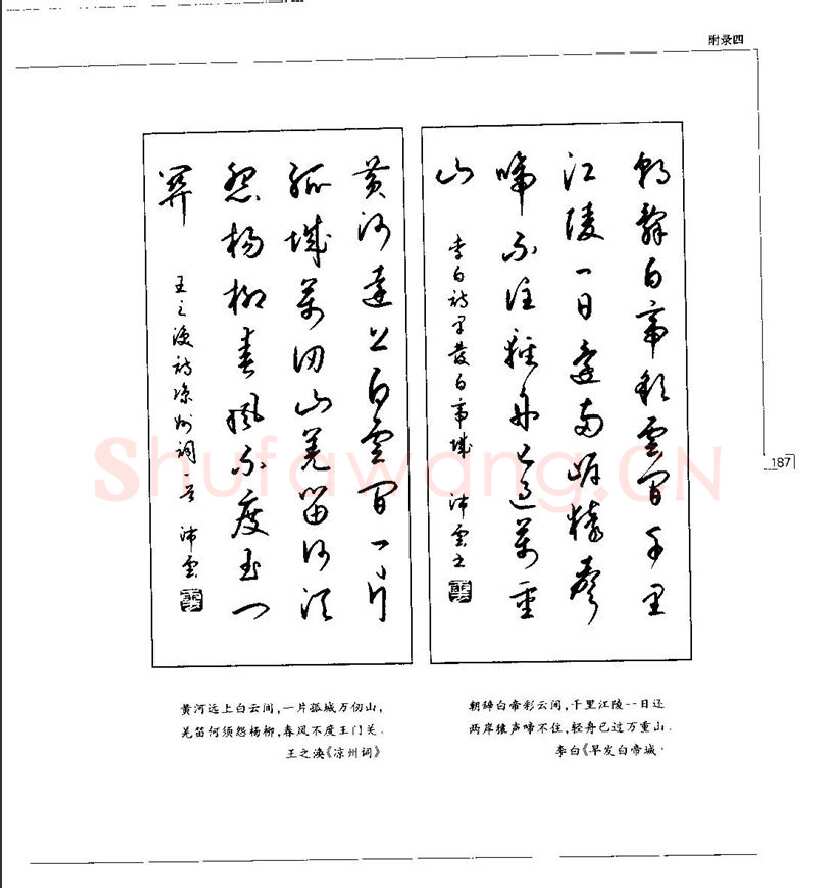 附录四
朝辞白帝彩云间千里
江陵一日还两岸猿声
啼不住轻舟已过万重
山
李白诗早发白帝城 沛云书
黄河远上白云间一片
孤城万仞山羌笛何须
怨杨柳春风不度玉门
关
王之涣诗凉州词一首 沛云
187
Shufawang.CN
黄河远上白云间,一片孤城万仞山,
羌笛何须怨杨柳,春风不度玉门关.
王之涣《凉州词》
朝辞白帝彩云间,千里江陵一日还
两岸猿声啼不住,轻舟已过万重山.
李白《早发白帝城·